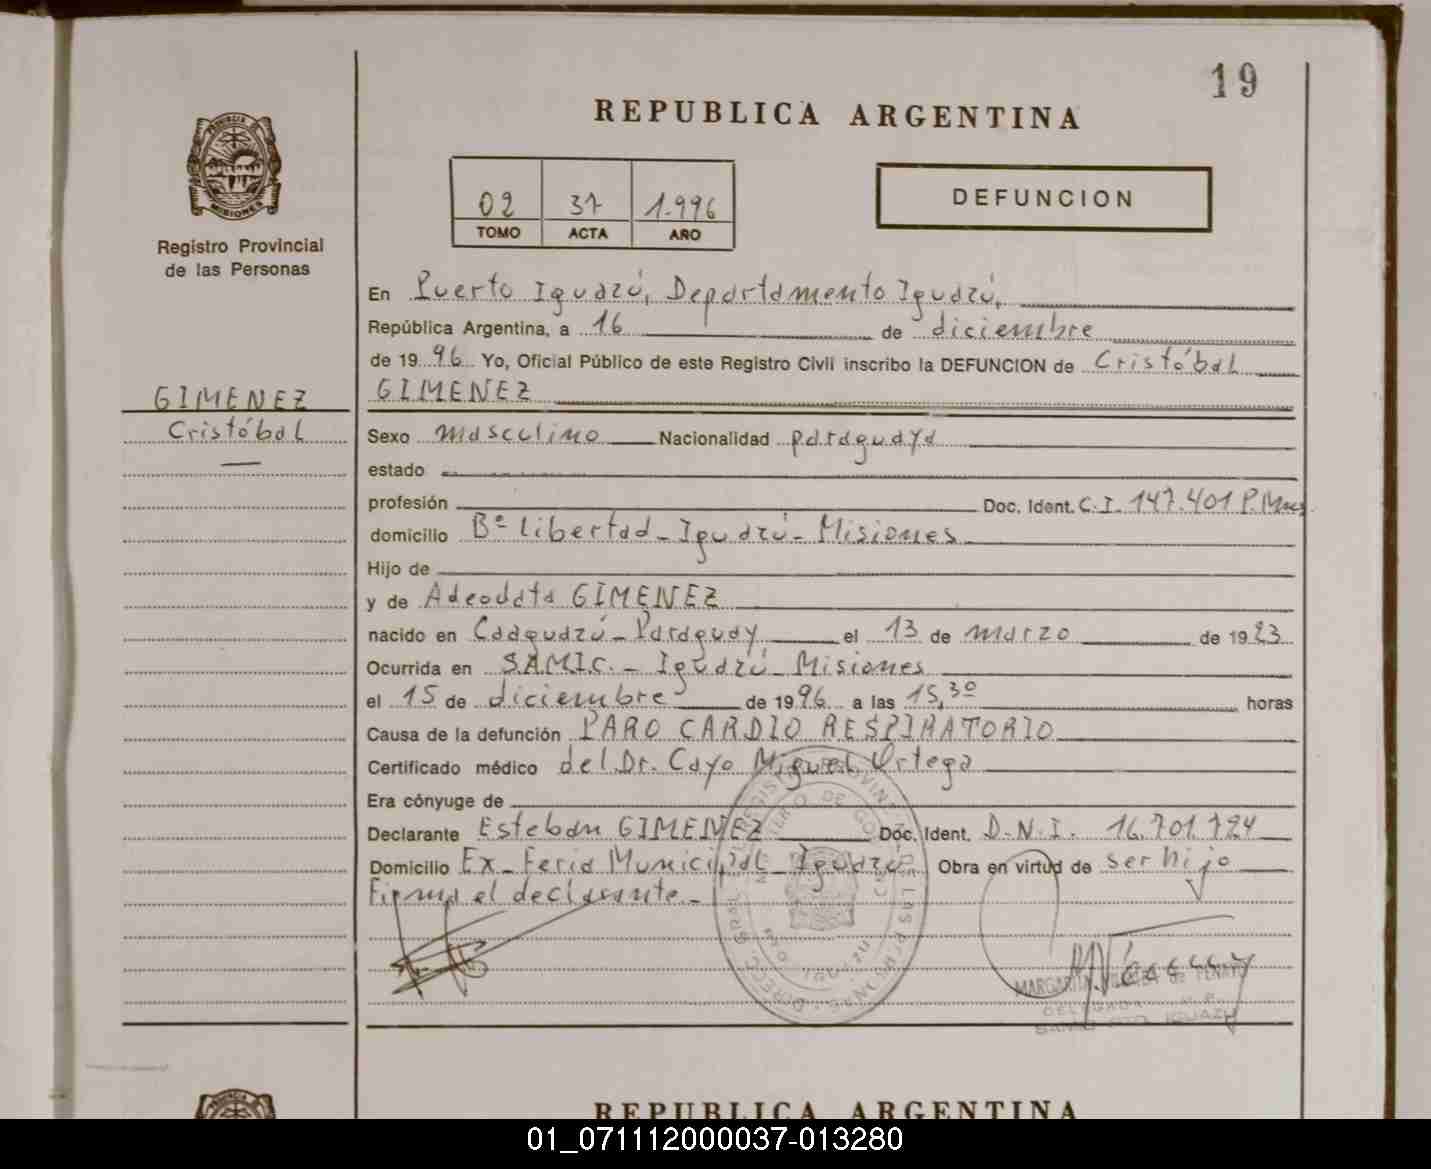 19
REPUBLICA ARGENTINA
PROVINCIA DE
MISIONES
Registro Provincial
de las Personas
02 37 1.996
TOMO ACTA AÑO
DEFUNCION
En Puerto Iguazú, Departamento Iguazú,
República Argentina, a 16 de diciembre
de 1996 Yo, Oficial Público de este Registro Civil inscribo la DEFUNCION de Cristóbal
GIMENEZ
GIMENEZ
Cristóbal
Sexo masculino Nacionalidad paraguaya
estado
profesión Doc. Ident. C.I. 147.401 P.Mnes
domicilio Bº Libertad - Iguazú - Misiones
Hijo de
y de Adeodata GIMENEZ
nacido en Caaguazú - Paraguay el 13 de marzo de 1923
Ocurrida en S.A.M.I.C. - Iguazú Misiones
el 15 de diciembre de 1996 a las 15,30 horas
Causa de la defunción PARO CARDIO RESPIRATORIO
Certificado médico del Dr. Cayo Miguel Ortega
Era cónyuge de
Declarante Esteban GIMENEZ Doc. Ident. D.N.I. 16.701.724
Domicilio Ex-Feria Municipal - Iguazú Obra en virtud de ser hijo
Firma el declarante.-
MARGARITA
DELEGADA
IGUAZU
REPUBLICA ARGENTINA
01_071112000037-013280